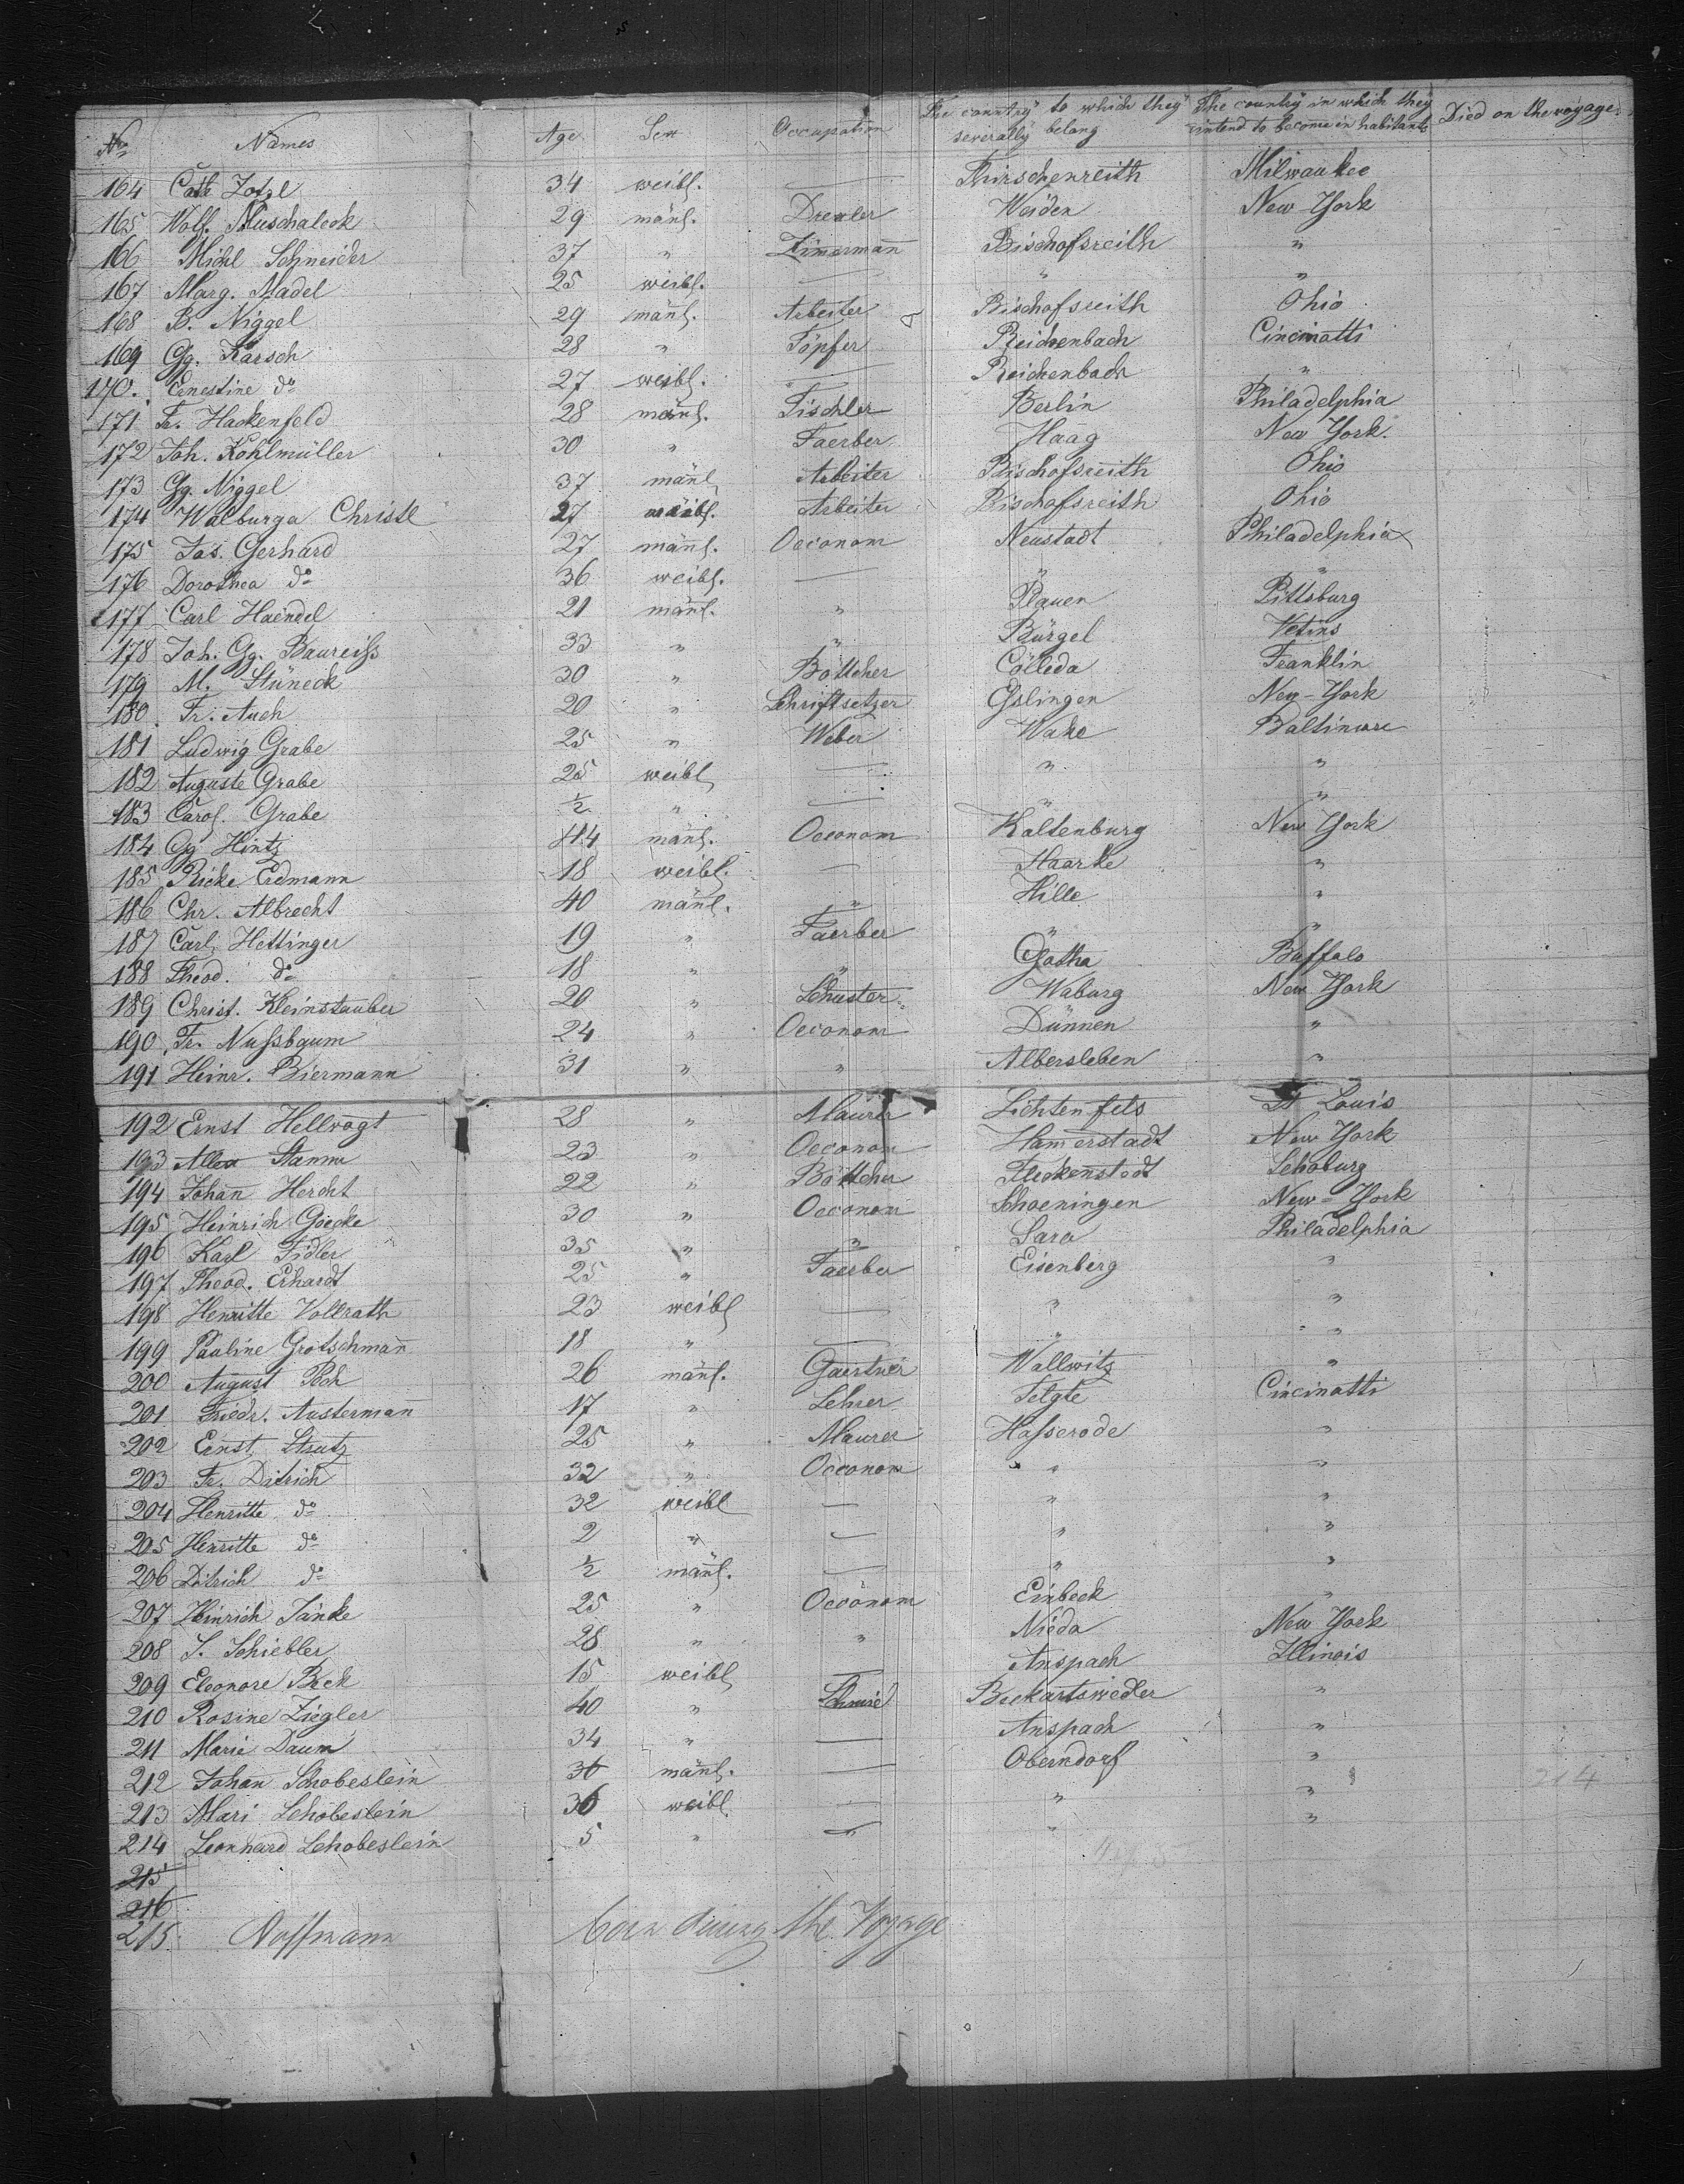 No. Names Age Sex Occupation The country to which they severally belong The country in which they intend to become inhabitants Died on the voyage
164 Cath Zotzl 34 weibl. — Thirschenreith Milwaukee
165 Wolf. Muschaleck 29 mänl. Drexler Weiden New York
166 Michl Schneider 37 " Zimermann Bischofsreith "
167 Marg. Madel 25 weibl. — " "
168 B. Niggel 29 mänl. Arbeiter Bischofsreith Ohio
169 Gg. Karsch 28 " Töpfer Reichenbach Cincinatti
170. Ernestine do 27 weibl. — Reichenbach "
171 Fr. Hackenfeld 28 mänl. Tischler Berlin Philadelphia
172 Joh. Kohlmüller 30 " Faerber Haag New York.
173 Gg. Niggel 37 mänl Arbeiter Bischofsreith Ohio
174 Walburga Christl 27 weibl. Arbeiter Bischofsreith Ohio
175 Jos. Gerhard 27 mänl. Oeconom Neustadt Philadelphia
176 Dorothea do 36 weibl. — " "
177 Carl Haendel 21 mänl. " Plauen Pittsburg
178 Joh. Gg. Baureiss 33 " " Bürgel Vetins
179 M. Stüneck 30 " Böttcher Cölleda Franklin
180 Fr. Auch 20 " Schriftsetzer Eslingen New-York
181 Ludwig Grabe 25 " Weber Wake Baltimore
182 Auguste Grabe 25 weibl — " "
183 Carol. Grabe ½ " — " "
184 Gg Hintz 44 mänl. Oeconom Kaltenburg New York
185 Ricke Erdmann 18 weibl. — Haarke "
186 Chr. Albrecht 40 mänl. " Hille "
187 Carl Hettinger 19 " Faerber " "
188 Theod. do 18 " " Gotha Buffalo
189 Christ. Kleinstauber 20 " Schuster Waburg New York
190 Fr. Nussbaum 24 " Oeconom Dünnen "
191 Heinr. Biermann 31 " " Albersleben "
192 Ernst Hellvogt 28 " Maurer Lichtenfels St Louis
193 Allex Stamm 23 " Oeconom Hamerstadt New York
194 Johan Hercht 22 " Böttcher Fleckenstedt Schoburg
195 Heinrich Goecke 30 " Oeconom Schoeningen New-York
196 Karl Fidler 35 " " Sara Philadelphia
197 Theod. Erhardt 25 " Faerber Eisenberg "
198 Henritte Vollrath 23 weibl — " "
199 Pauline Grotschman 18 " — " "
200 August Poh 26 mänl. Gaertner Wallwitz "
201 Friedr. Austerman 17 " Lehrer Telgte Cincinatti
202 Ernst Strutz 25 " Maurer Hasserode "
203 Fr. Ditrich 32 " Oeconom " "
204 Henritte do 32 weibl — " "
205 Henritte do 2 " — " "
206 Ditrich do ½ mänl. — " "
207 Heinrich Jänke 25 " Oeconom Einbeck "
208 S. Schiebler 28 " " Nieda New York
209 Eleonore Beck 15 weibl — Anspach Illinois
210 Rosine Ziegler 40 " Beekartswedler "
211 Marie Daum 34 " — Anspach "
212 Johan Schobeslein 36 mänl. — Oberndorf "
213 Mari Schobeslein 36 weibl — " "
214 Leonhard Schobeslein 5 " — " "
214
215
216
215 Noffmann born during the Voyage